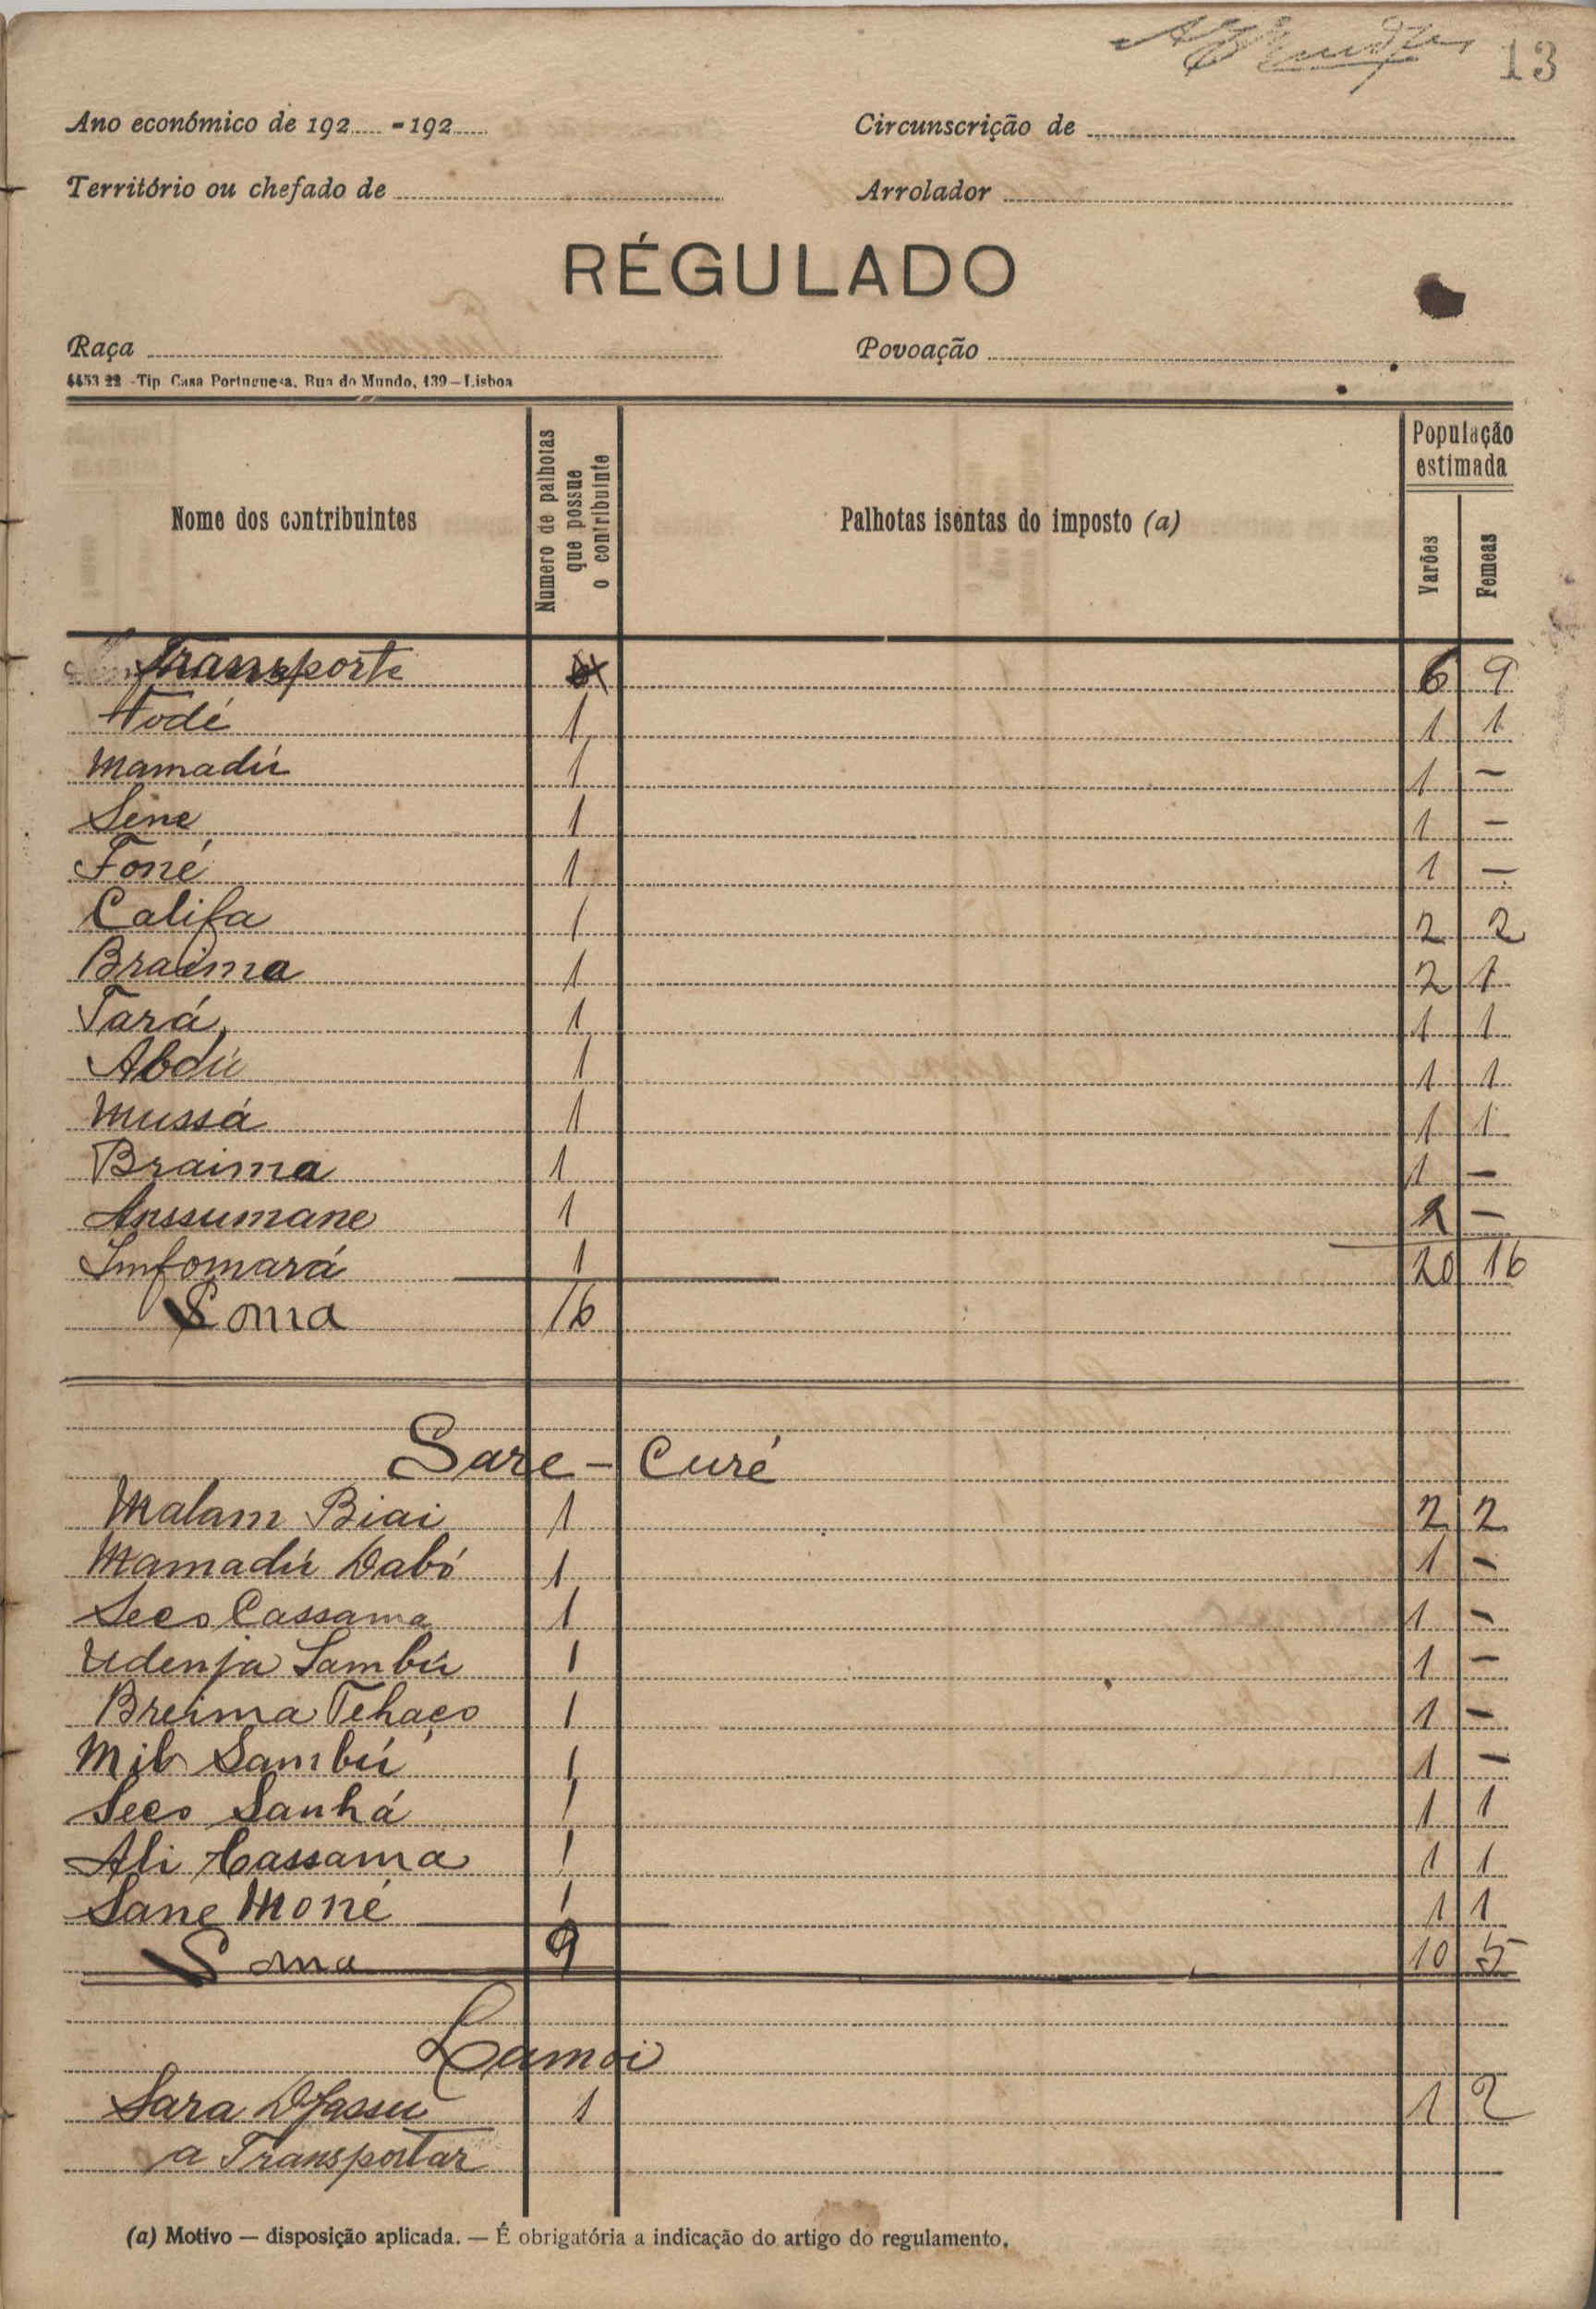 13
Ano económico de 192..... - 192.....
Circunscrição de
Território ou chefado de
Arrolador
RÉGULADO
Raça
Povoação
4453 22 - Tip. Casa Portuguesa, Rua do Mundo, 139 — Lisboa
Nome dos contribuintes
Numero de palhotas que possue o contribuinte
Palhotas isentas do imposto (a)
População estimada
Varões
Femeas
Transporte 6 9
Fodé 1 1 1
Mamadú 1 1 —
Sene 1 1 —
Foné 1 1 —
Califa 1 2 2
Braima 1 2 1
Tará 1 1 1
Abdú 1 1 1
Mussá 1 1 1
Braima 1 1 —
Anssumane 1 2 —
Imfomará 1 20 16
Soma 16
Sare - Curé
Malam Biai 1 2 2
Mamadú Dabó 1 1 —
Seco Cassama 1 1 —
Udenja Sambú 1 1 —
Breima Tchaco 1 1 —
Mil Sambú 1 1 —
Seco Sanhá 1 1 1
Ali Cassama 1 1 1
Sane Moné 1 1 1
Soma 9 10 5
Lamoi
Sara Djassu 1 1 2
a Transportar
(a) Motivo — disposição aplicada. — É obrigatória a indicação do artigo do regulamento.